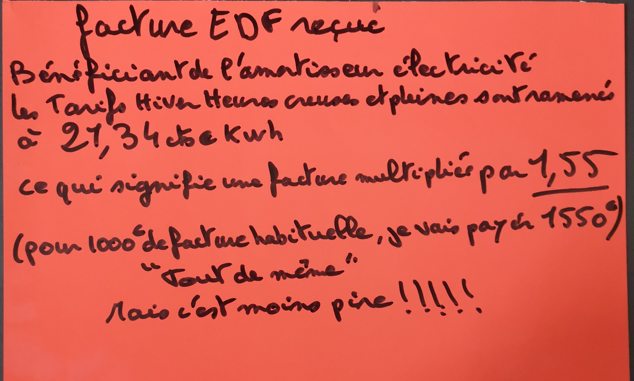 facture EDF reçue
Bénéficiant de l'amortisseur électricité
les Tarifs Hiver Heures creuses et pleines sont ramenés
à 21,34 cts € Kwh
ce qui signifie une facture multipliée par 1,55
(pour 1000€ de facture habituelle, je vais payer 1550€)
"Tout de même"
Mais c'est moins pire !!!!!